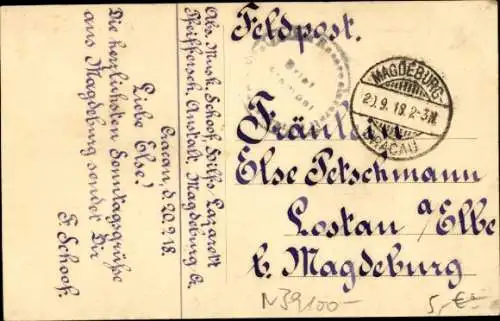 Feldpost.
Abs. Musk. Schoof, Hilfs Lazarett
Pfeiffersch. Anstalt. Magdeburg Cr.
Cracau, d. 20.9.18.
Liebe Else!
Die herzlichsten Sonntagsgrüße
aus Magdeburg sendet Dir
Fr. Schoof.
Brief
MAGDEBURG-
20.9.18.2-3N.
CRACAU
Fräulein
Else Petschmann
Lostau a/Elbe
b. Magdeburg
N39100-
5,€